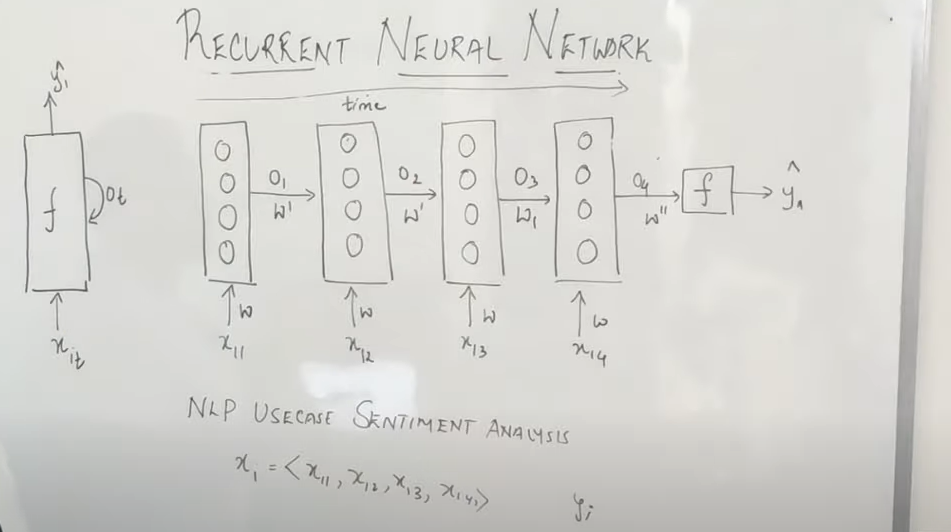 RECURRENT NEURAL NETWORK
time
ŷ₁
f
Ot
xᵢt
O₁
W'
O₂
W'
O₃
W₁
O₄
W''
f
ŷ₁
W
W
W
W
x₁₁
x₁₂
x₁₃
x₁₄
NLP USECASE SENTIMENT ANALYSIS
x₁ = <x₁₁, x₁₂, x₁₃, x₁₄>
yᵢ